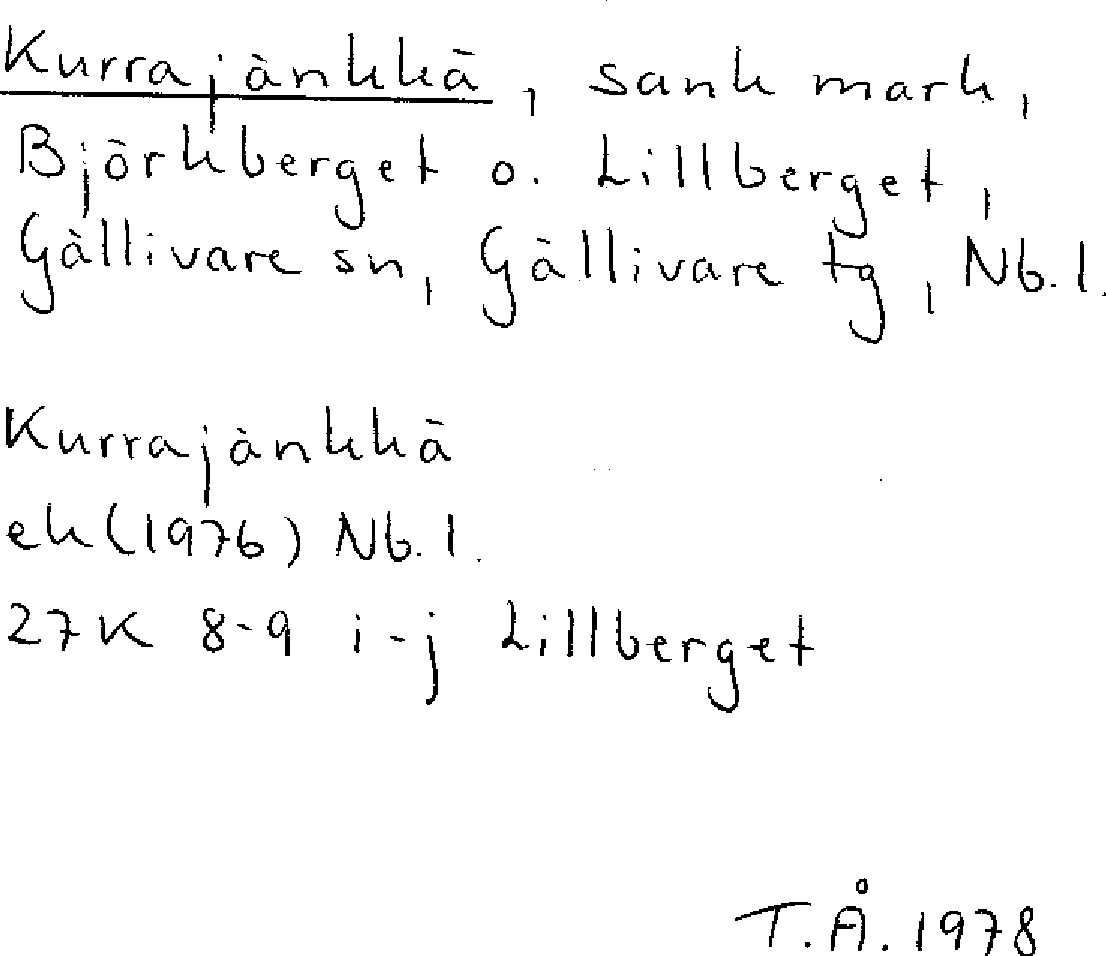 Kurrajänkkä, sank mark,
Björkberget o. Lillberget,
Gällivare sn, Gällivare tg, Nb. l.
Kurrajänkkä
ek (1976) Nb. l.
27K 8-9 i-j Lillberget
T.Å. 1978